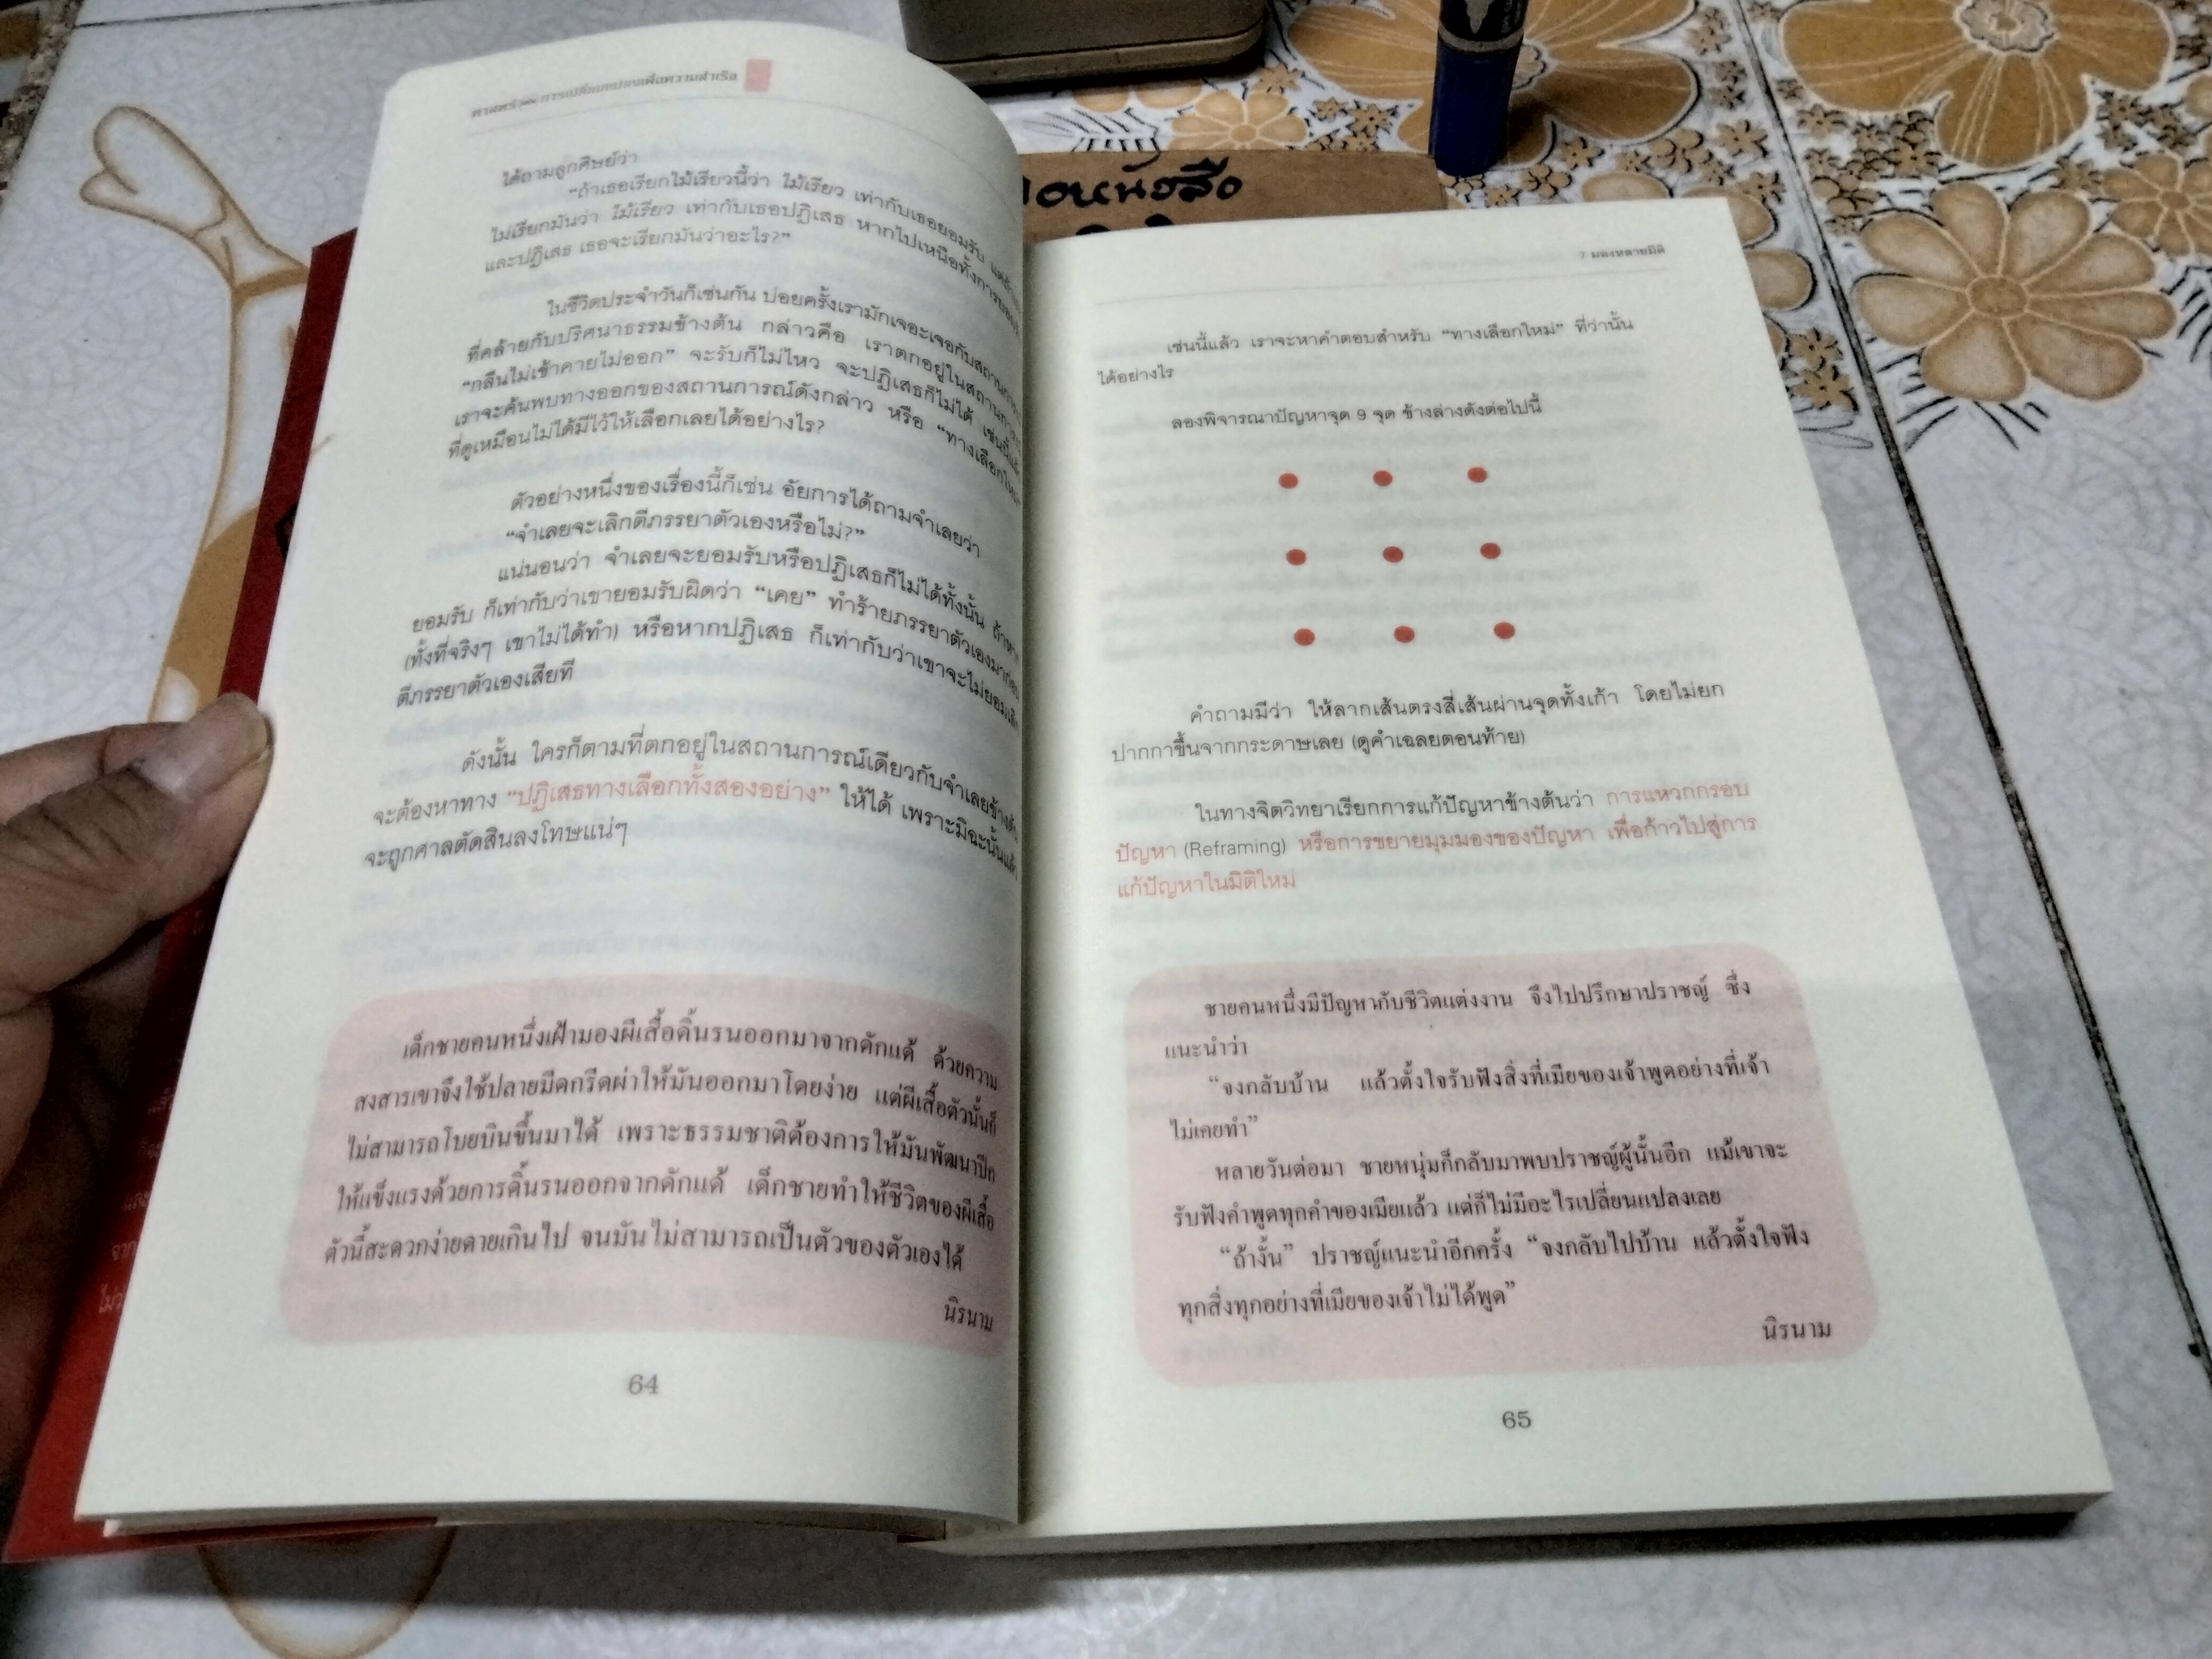 ศาสตร์ และ การเปลี่ยนแปลงเพื่อความสำเร็จ
ได้ถามลูกศิษย์ว่า
“ถ้าเธอเรียกไม้เรียวนี้ว่า ไม้เรียว เท่ากับเธอยอมรับ
ไม่เรียกมันว่า ไม้เรียว เท่ากับเธอปฏิเสธ หากไปเหนือทั้งการยอมรับ
และปฏิเสธ เธอจะเรียกมันว่าอะไร?”
ในชีวิตประจำวันก็เช่นกัน บ่อยครั้งเรามักเจอะเจอกับสถานการณ์
ที่คล้ายกับปริศนาธรรมข้างต้น กล่าวคือ เราตกอยู่ในสถานการณ์
“กลืนไม่เข้าคายไม่ออก” จะรับก็ไม่ไหว จะปฏิเสธก็ไม่ได้ เช่นนี้แล้ว
เราจะค้นพบทางออกของสถานการณ์ดังกล่าว หรือ “ทางเลือกใหม่”
ที่ดูเหมือนไม่ได้มีไว้ให้เลือกเลยได้อย่างไร?
ตัวอย่างหนึ่งของเรื่องนี้ก็เช่น อัยการได้ถามจำเลยว่า
“จำเลยจะเลิกตีภรรยาตัวเองหรือไม่?”
แน่นอนว่า จำเลยจะยอมรับหรือปฏิเสธก็ไม่ได้ทั้งนั้น ถ้าหาก
ยอมรับ ก็เท่ากับว่าเขายอมรับผิดว่า “เคย” ทำร้ายภรรยาตัวเองมาก่อน
(ทั้งที่จริงๆ เขาไม่ได้ทำ) หรือหากปฏิเสธ ก็เท่ากับว่าเขาจะไม่ยอมเลิก
ตีภรรยาตัวเองเสียที
ดังนั้น ใครก็ตามที่ตกอยู่ในสถานการณ์เดียวกับจำเลยข้างต้น
จะต้องหาทาง “ปฏิเสธทางเลือกทั้งสองอย่าง” ให้ได้ เพราะมิฉะนั้นแล้ว
จะถูกศาลตัดสินลงโทษแน่ๆ
เด็กชายคนหนึ่งเฝ้ามองผีเสื้อดิ้นรนออกมาจากดักแด้ ด้วยความ
สงสารเขาจึงใช้ปลายมีดกรีดผ่าให้มันออกมาโดยง่าย แต่ผีเสื้อตัวนั้นก็
ไม่สามารถโบยบินขึ้นมาได้ เพราะธรรมชาติต้องการให้มันพัฒนาปีก
ให้แข็งแรงด้วยการดิ้นรนออกจากดักแด้ เด็กชายทำให้ชีวิตของผีเสื้อ
ตัวนี้สะดวกง่ายดายเกินไป จนมันไม่สามารถเป็นตัวของตัวเองได้
นิรนาม
64
อหนังสือ
7 มองหลายมิติ
เช่นนี้แล้ว เราจะหาคำตอบสำหรับ “ทางเลือกใหม่” ที่ว่านั้น
ได้อย่างไร
ลองพิจารณาปัญหาจุด 9 จุด ข้างล่างดังต่อไปนี้
คำถามมีว่า ให้ลากเส้นตรงสี่เส้นผ่านจุดทั้งเก้า โดยไม่ยก
ปากกาขึ้นจากกระดาษเลย (ดูคำเฉลยตอนท้าย)
ในทางจิตวิทยาเรียกการแก้ปัญหาข้างต้นว่า การแหวกกรอบ
ปัญหา (Reframing) หรือการขยายมุมมองของปัญหา เพื่อก้าวไปสู่การ
แก้ปัญหาในมิติใหม่
ชายคนหนึ่งมีปัญหากับชีวิตแต่งงาน จึงไปปรึกษาปราชญ์ ซึ่ง
แนะนำว่า
“จงกลับบ้าน แล้วตั้งใจรับฟังสิ่งที่เมียของเจ้าพูดอย่างที่เจ้า
ไม่เคยทำ”
หลายวันต่อมา ชายหนุ่มก็กลับมาพบปราชญ์ผู้นั้นอีก แม้เขาจะ
รับฟังคำพูดทุกคำของเมียแล้ว แต่ก็ไม่มีอะไรเปลี่ยนแปลงเลย
“ถ้างั้น” ปราชญ์แนะนำอีกครั้ง “จงกลับไปบ้าน แล้วตั้งใจฟัง
ทุกสิ่งทุกอย่างที่เมียของเจ้าไม่ได้พูด”
นิรนาม
65